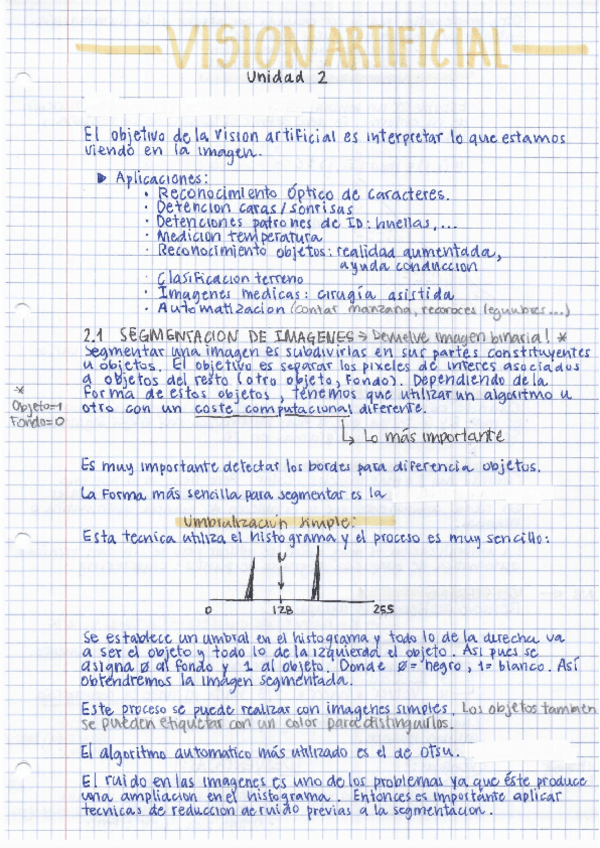 VISION ARTIFICIAL
Unidad 2
El objetivo de la vision artificial es interpretar lo que estamos
viendo en la imagen.
Aplicaciones:
· Reconocimiento óptico de caracteres.
· Detencion caras/sonrisas
· Detenciones patrones de ID: huellas,...
· Medicion temperatura
· Reconocimiento objetos: realidad aumentada,
ayuda conduccion
· Clasificacion terreno
· Imagenes medicas: cirugía asistida
· Automatizacion (contar manzana, reconoces legumbres...)
2.1 SEGMENTACION DE IMAGENES → Devuelve imagen binaria! *
Segmentar una imagen es subdividirlas en sus partes constituyentes
u objetos. El objetivo es separar los pixeles de interes asociados
a objetos del resto (otro objeto, fondo). Dependiendo de la
forma de estos objetos, tenemos que utilizar un algoritmo u
otro con un coste computacional diferente.
*
Objeto=1
Fondo=0
↳ Lo más importante
Es muy importante detectar los bordes para diferencia objetos.
La forma más sencilla para segmentar es la
Umbralización simple:
Esta tecnica utiliza el histograma y el proceso es muy sencillo:
0 128 255
Se establece un umbral en el histograma y todo lo de la derecha va
a ser el objeto y todo lo de la izquierda el objeto. Asi pues se
asigna ø al fondo y 1 al objeto. Donde ø = negro, 1 = blanco. Así
obtendremos la imagen segmentada.
Este proceso se puede realizar con imagenes simples. Los objetos tambien
se pueden etiquetar con un color para distinguirlos.
El algoritmo automatico más utilizado es el de Otsu.
El ruido en las imagenes es uno de los problemas ya que éste produce
una ampliacion en el histograma. Entonces es importante aplicar
tecnicas de reduccion de ruido previas a la segmentacion.